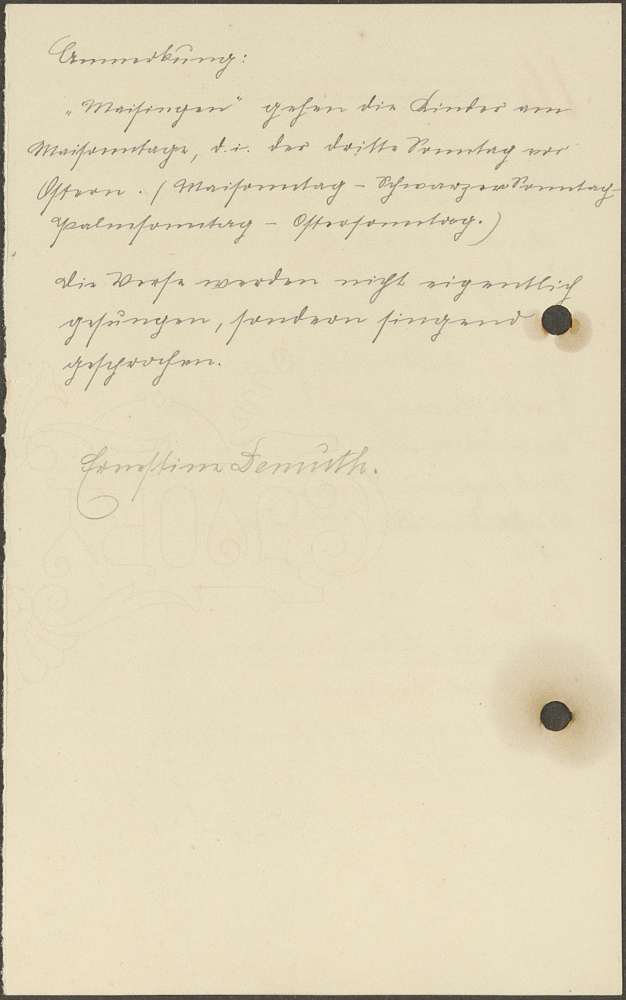 Anmerkung:
„Maisingen“ gehen die Kinder am
Maisonntage, d. i. der dritte Sonntag vor
Ostern. (Maisonntag - Schwarzer Sonntag -
Palmsonntag - Ostersonntag.)
Die Verse werden nicht eigentlich
gesungen, sondern singend
gesprochen.
Ernestine Demuth.